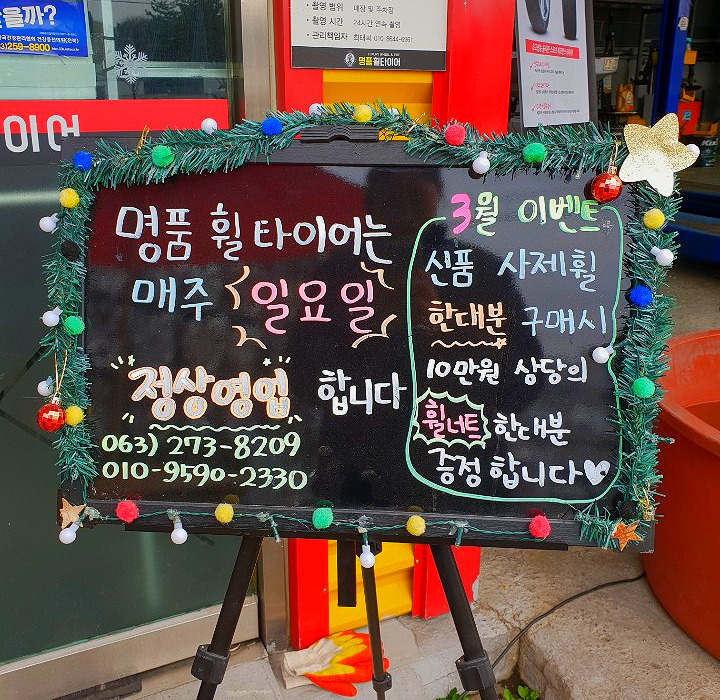 을까?
259-8900
· 촬영 범위 매장 및 주차장
· 촬영 시간 24시간 연속 촬영
· 관리책임자
명품휠타이어
이어
명품 휠 타이어는
매주 일요일
정상영업 합니다
063) 273-8209
010-9590-2330
3월 이벤트
신품 사제휠
한대분 구매시
10만원 상당의
휠너트 한대분
증정 합니다